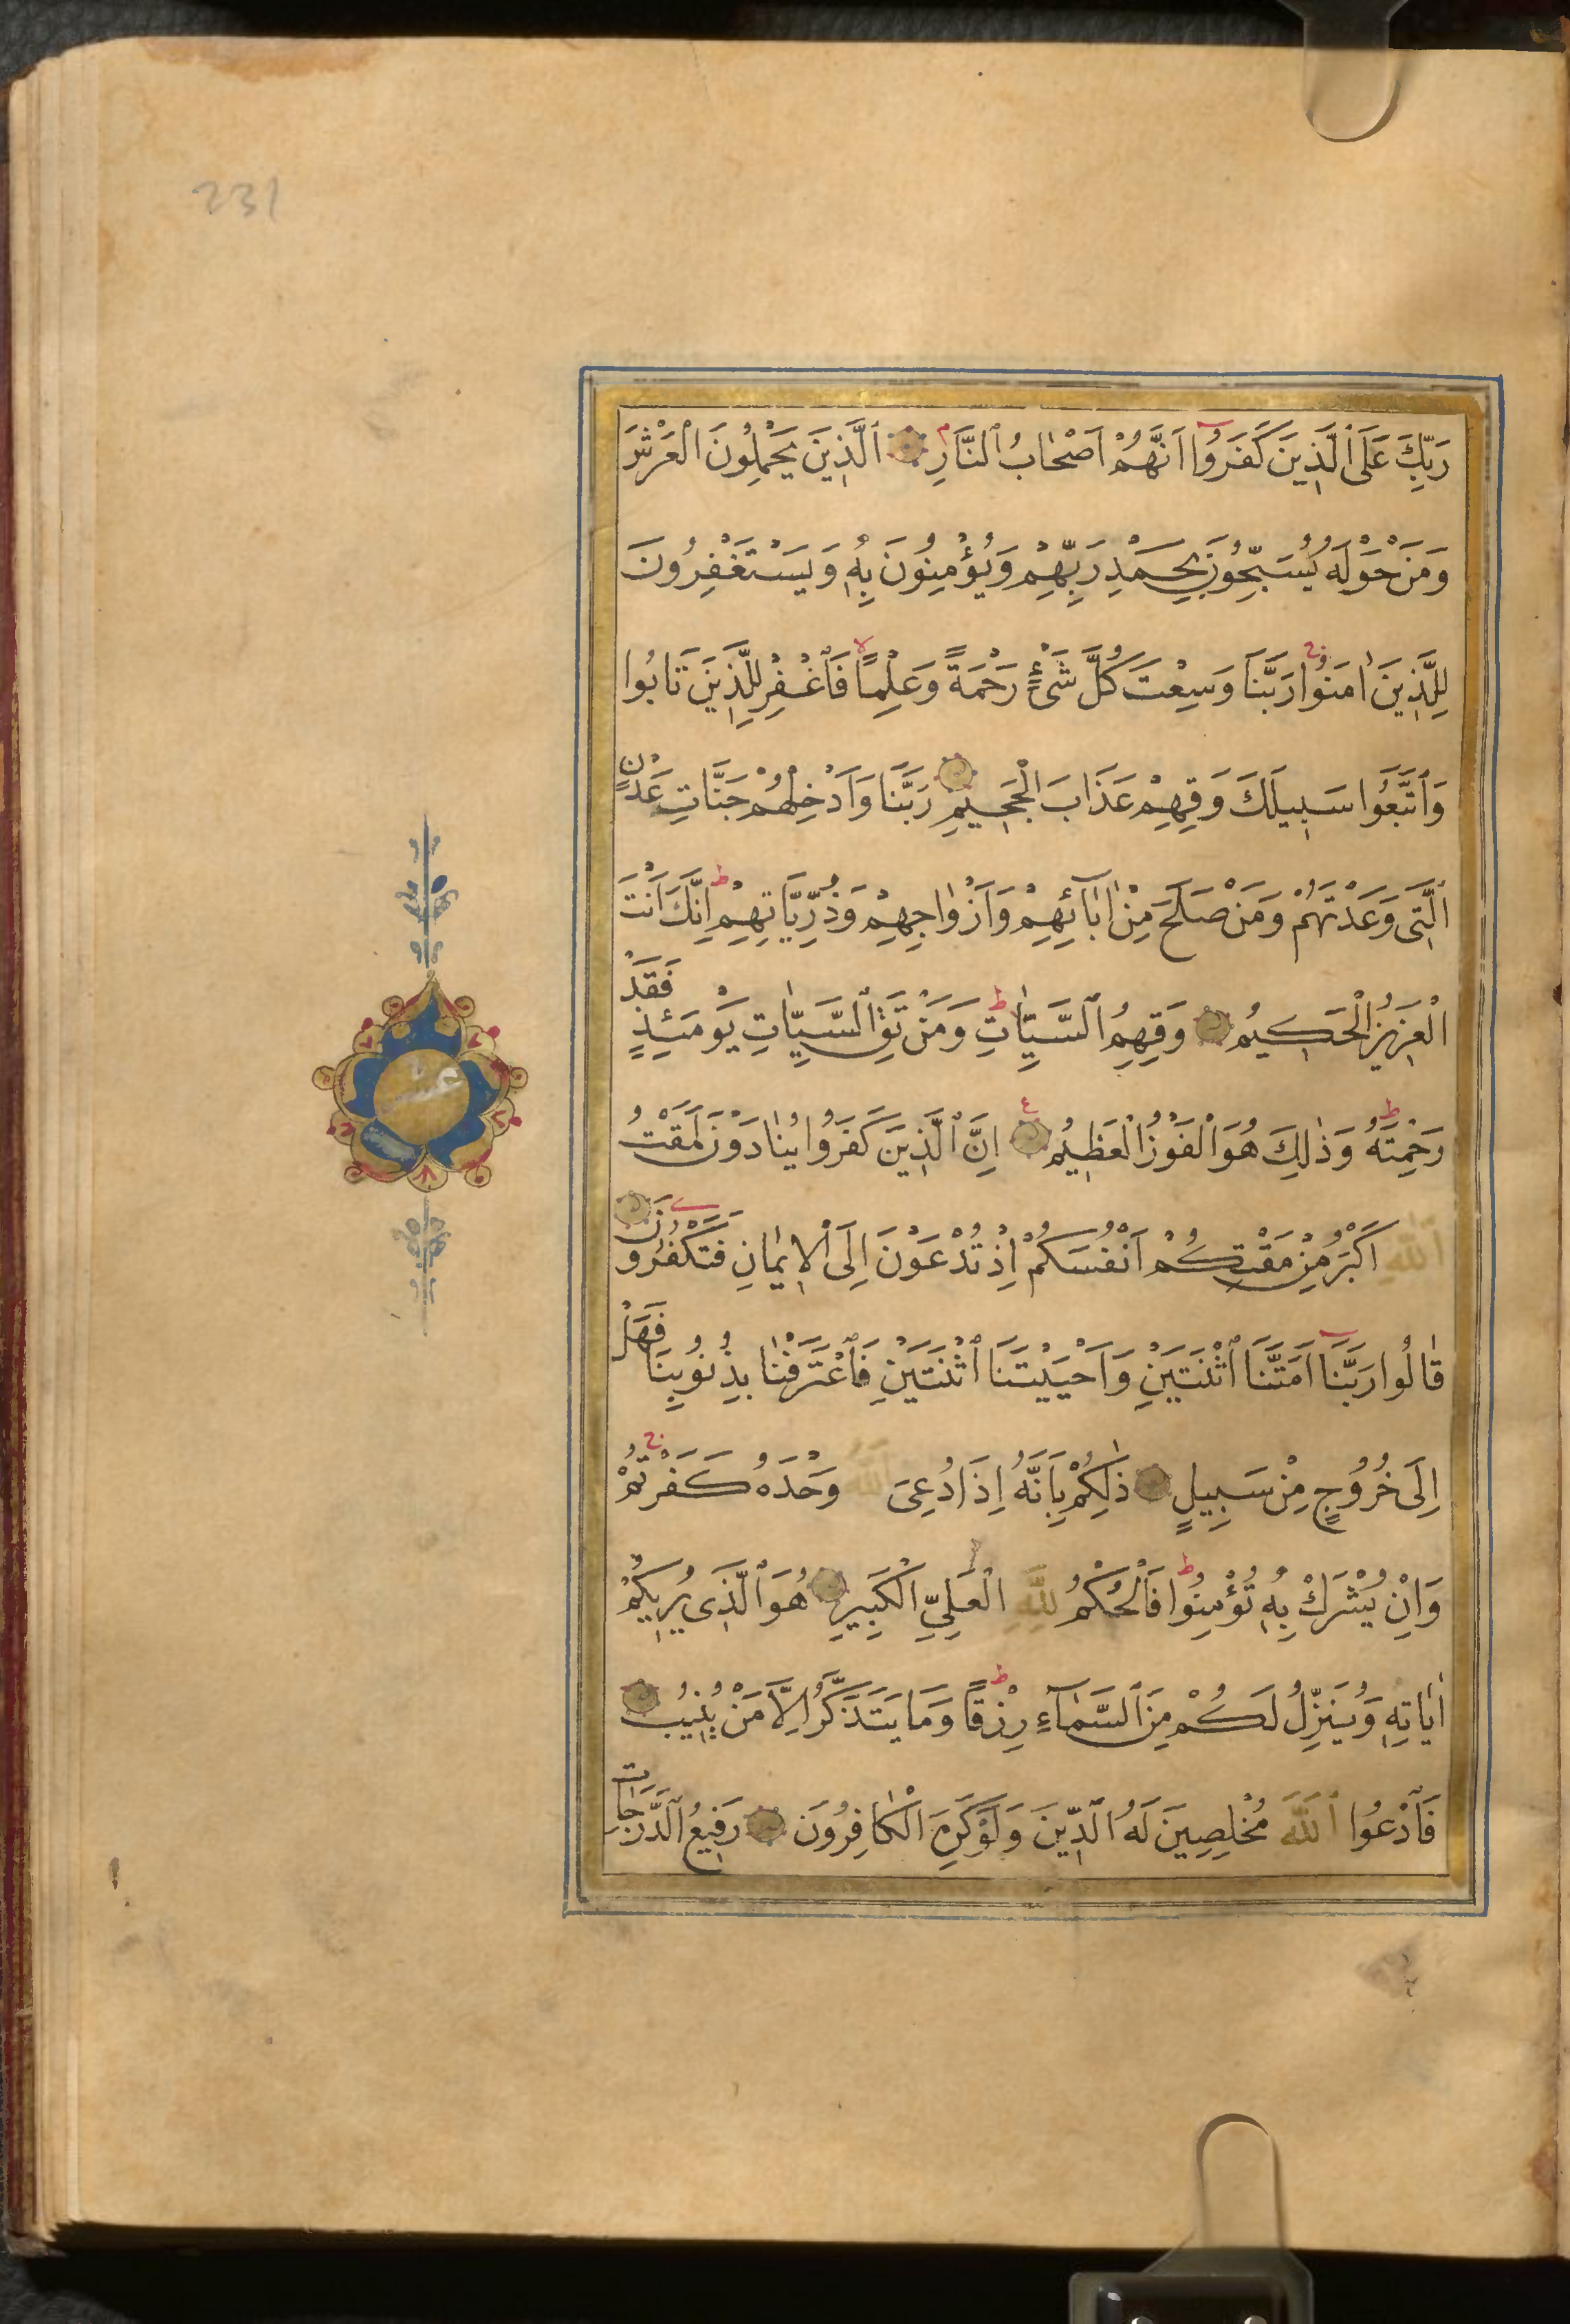 231
رَبِّكَ عَلَى ٱلَّذِينَ كَفَرُوٓا اَنَّهُمْ اَصْحٰابُ ٱلنَّارِ م ٱلَّذِينَ يَحْمِلُونَ ٱلْعَرْشَ
وَمَنْ حَوْلَهُ يُسَبِّحُونَ بِحَمْدِ رَبِّهِمْ وَيُؤْمِنُونَ بِهٖ وَيَسْتَغْفِرُونَ
لِلَّذِينَ اٰمَنُوا ج رَبَّنَا وَسِعْتَ كُلَّ شَىْءٍ رَحْمَةً وَعِلْمًا لا فَاغْفِرْ لِلَّذِينَ تَابُوا
وَٱتَّبَعُوا سَبِيلَكَ وَقِهِمْ عَذَابَ ٱلْجَحِيمِ رَبَّنَا وَاَدْخِلْهُمْ جَنَّاتِ عَدْنٍ
ٱلَّتِى وَعَدْتَهُمْ وَمَنْ صَلَحَ مِنْ اٰبَآئِهِمْ وَاَزْوٰاجِهِمْ وَذُرِّيَّاتِهِمْ ط اِنَّكَ اَنْتَ
ٱلْعَزِيزُ ٱلْحَكِيمُ وَقِهِمُ ٱلسَّيِّاٰتِ ط وَمَنْ تَقِ ٱلسَّيِّاٰتِ يَوْمَئِذٍ فَقَدْ
رَحِمْتَهُ ط وَذٰلِكَ هُوَ ٱلْفَوْزُ ٱلْعَظِيمُ ع اِنَّ ٱلَّذِينَ كَفَرُوا يُنٰادَوْنَ لَمَقْتُ
ٱللّٰهِ اَكْبَرُ مِنْ مَقْتِكُمْ اَنْفُسَكُمْ اِذْ تُدْعَوْنَ اِلَى ٱلْاِيمٰانِ فَتَكْفُرُونَ
قٰالُوا رَبَّنَآ اَمَتَّنَا ٱثْنَتَيْنِ وَاَحْيَيْتَنَا ٱثْنَتَيْنِ فَٱعْتَرَفْنٰا بِذُنُوبِنَا فَهَلْ
اِلَى خُرُوجٍ مِنْ سَبِيلٍ ذٰلِكُمْ بِاَنَّهُ اِذَا دُعِىَ ٱللّٰهُ وَحْدَهُ كَفَرْتُمْ ج
وَاِنْ يُشْرَكْ بِهٖ تُؤْمِنُوا ط فَٱلْحُكْمُ لِلّٰهِ ٱلْعَلِىِّ ٱلْكَبِيرِ هُوَ ٱلَّذِى يُرِيكُمْ
اٰيَاتِهٖ وَيُنَزِّلُ لَكُمْ مِنَ ٱلسَّمٰآءِ رِزْقًا ط وَمَا يَتَذَكَّرُ اِلَّا مَنْ يُنِيبُ
فَٱدْعُوا ٱللّٰهَ مُخْلِصِينَ لَهُ ٱلدِّينَ وَلَوْ كَرِهَ ٱلْكٰافِرُونَ رَفِيعُ ٱلدَّرَجٰاتِ